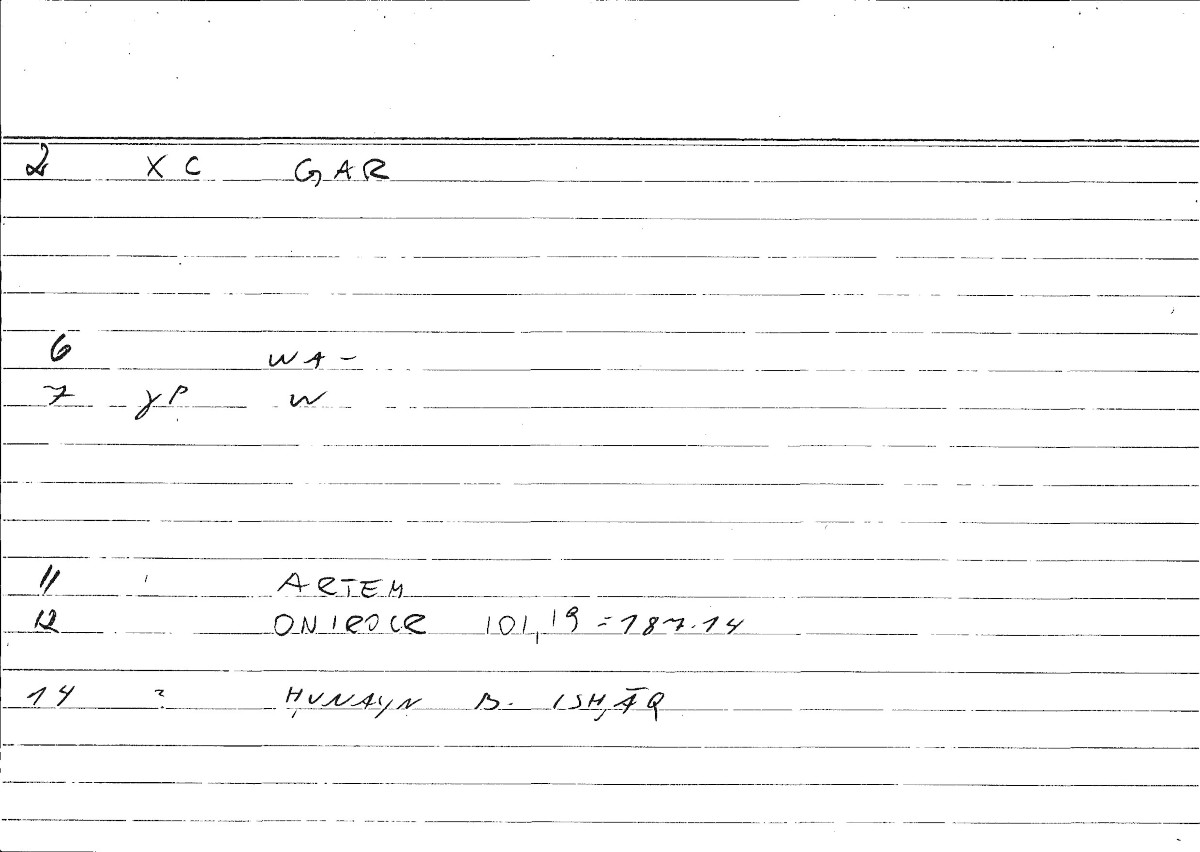 2 XC GAR
6 WA-
7 γP W
11 ARTEM
12 ONIROCR 101,19 = 187.14
14 ? ḤUNAYN B. ISḤĀQ